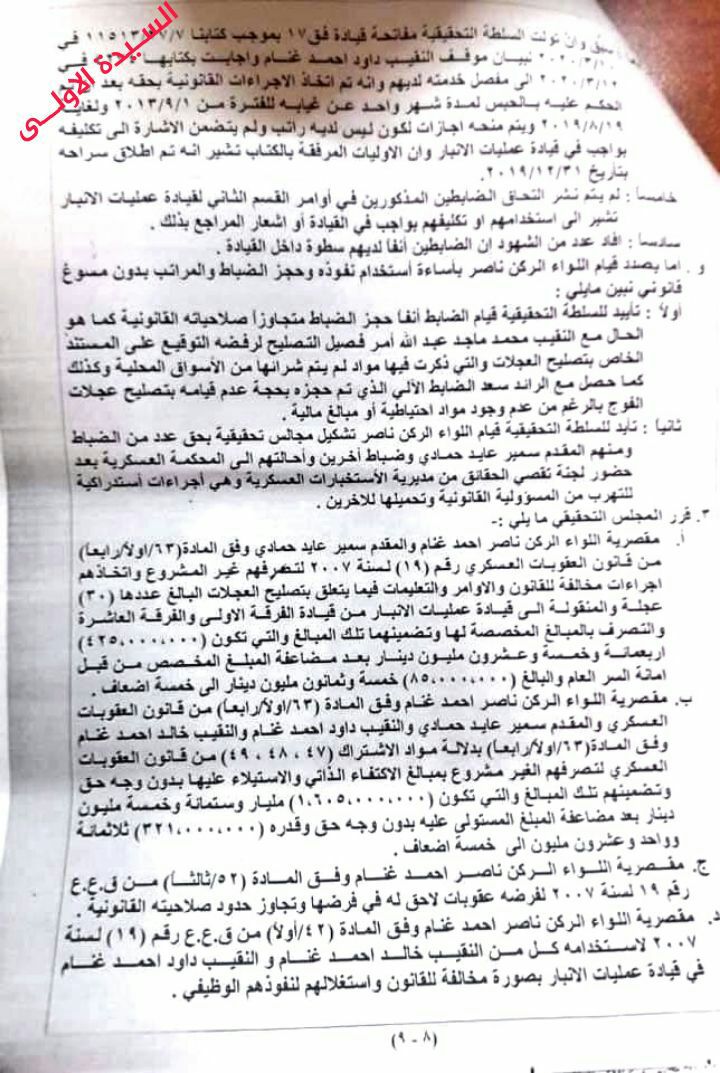 السيدة الاولى
سبق وان تولت السلطة التحقيقية مفاتحة قيادة فق١٧ بموجب كتابنا في
٢٠٢٠/٣/١٠ لبيان موقف النقيب داود احمد غنام واجابت بكتابها في
٢٠٢٠/٣/١٢ الى مفصل خدمته لديهم وانه تم اتخاذ الاجراءات القانونية بحقه بعد
الحكم عليه بالحبس لمدة شهر واحد عن غيابه للفترة من ٢٠١٣/٩/١ ولغاية
٢٠١٩/٨/١٩ ويتم منحه اجازات لكون ليس لديه راتب ولم يتضمن الاشارة الى تكليفه
بواجب في قيادة عمليات الانبار وان الاوليات المرفقة بالكتاب تشير انه تم اطلاق سراحه
بتأريخ ٢٠١٩/١٢/٣١.
خامساً : لم يتم نشر التحاق الضابطين المذكورين في أوامر القسم الثاني لقيادة عمليات الانبار
تشير الى استخدامهم او تكليفهم بواجب في القيادة أو اشعار المراجع بذلك .
سادساً : افاد عدد من الشهود إن الضابطين آنفاً لديهم سطوة داخل القيادة .
و . اما بصدد قيام اللواء الركن ناصر بأساءة أستخدام نفوذه وحجز الضباط والمراتب بدون مسوغ
قانوني نبين مايلي :
أولاً : تأييد للسلطة التحقيقية قيام الضابط آنفاً حجز الضباط متجاوزاً صلاحياته القانونية كما هو
الحال مع النقيب محمد ماجد عبد الله أمر فصيل التصليح لرفضه التوقيع على المستند
الخاص بتصليح العجلات والتي ذكرت فيها مواد لم يتم شرائها من الأسواق المحلية وكذلك
كما حصل مع الرائد سعد الضابط الألي الذي تم حجزه بحجة عدم قيامه بتصليح عجلات
الفوج بالرغم من عدم وجود مواد احتياطية أو مبالغ مالية .
ثانياً : تأيد للسلطة التحقيقية قيام اللواء الركن ناصر تشكيل مجالس تحقيقية بحق عدد من الضباط
ومنهم المقدم سمير عايد حمادي وضباط أخرين وأحالتهم الى المحكمة العسكرية بعد
حضور لجنة تقصي الحقائق من مديرية الأستخبارات العسكرية وهي أجراءات أستدراكية
للتهرب من المسؤولية القانونية وتحميلها للاخرين .
٣. قرر المجلس التحقيقي ما يلي :-
أ. مقصرية اللواء الركن ناصر احمد غنام والمقدم سمير عايد حمادي وفق المادة(٦٣/اولاً/رابعاً)
من قانون العقوبات العسكري رقم (١٩) لسنة ٢٠٠٧ لتصرفهم غير المشروع واتخاذهم
اجراءات مخالفة للقانون والاوامر والتعليمات فيما يتعلق بتصليح العجلات البالغ عددها (٣٠)
عجلة والمنقولة الى قيادة عمليات الانبار من قيادة الفرقة الاولى والفرقة العاشرة
والتصرف بالمبالغ المخصصة لها وتضمينهما تلك المبالغ والتي تكون (٤٢٥،٠٠٠،٠٠٠)
اربعمائة وخمسة وعشرون مليون دينار بعد مضاعفة المبلغ المخصص من قبل
امانة السر العام والبالغ (٨٥،٠٠٠،٠٠٠) خمسة وثمانون مليون دينار الى خمسة اضعاف .
ب. مقصرية اللواء الركن ناصر احمد غنام وفق المادة (٦٣/اولاً/رابعاً) من قانون العقوبات
العسكري والمقدم سمير عايد حمادي والنقيب داود احمد غنام والنقيب خالد احمد غنام
وفق المادة(٦٣/اولاً/رابعاً) بدلالة مواد الاشتراك (٤٧ ، ٤٨ ، ٤٩) من قانون العقوبات
العسكري لتصرفهم الغير مشروع بمبالغ الاكتفاء الذاتي والاستيلاء عليها بدون وجه حق
وتضمينهم تلك المبالغ والتي تكون (١،٦٠٥،٠٠٠،٠٠٠) مليار وستمائة وخمسة مليون
دينار بعد مضاعفة المبلغ المستولى عليه بدون وجه حق وقدره (٣٢١،٠٠٠،٠٠٠) ثلاثمائة
وواحد وعشرون مليون الى خمسة اضعاف .
ج. مقصرية اللواء الركن ناصر احمد غنام وفق المادة (٥٢/ثالثاً) من ق.ع.ع
رقم ١٩ لسنة ٢٠٠٧ لفرضه عقوبات لاحق له في فرضها وتجاوز حدود صلاحيته القانونية .
د. مقصرية اللواء الركن ناصر احمد غنام وفق المادة (٤٢/أولاً) من ق.ع.ع رقم (١٩) لسنة
٢٠٠٧ لاستخدامه كل من النقيب خالد احمد غنام و النقيب داود احمد غنام
في قيادة عمليات الانبار بصورة مخالفة للقانون واستغلالهم لنفوذهم الوظيفي .
(٨ - ٩)